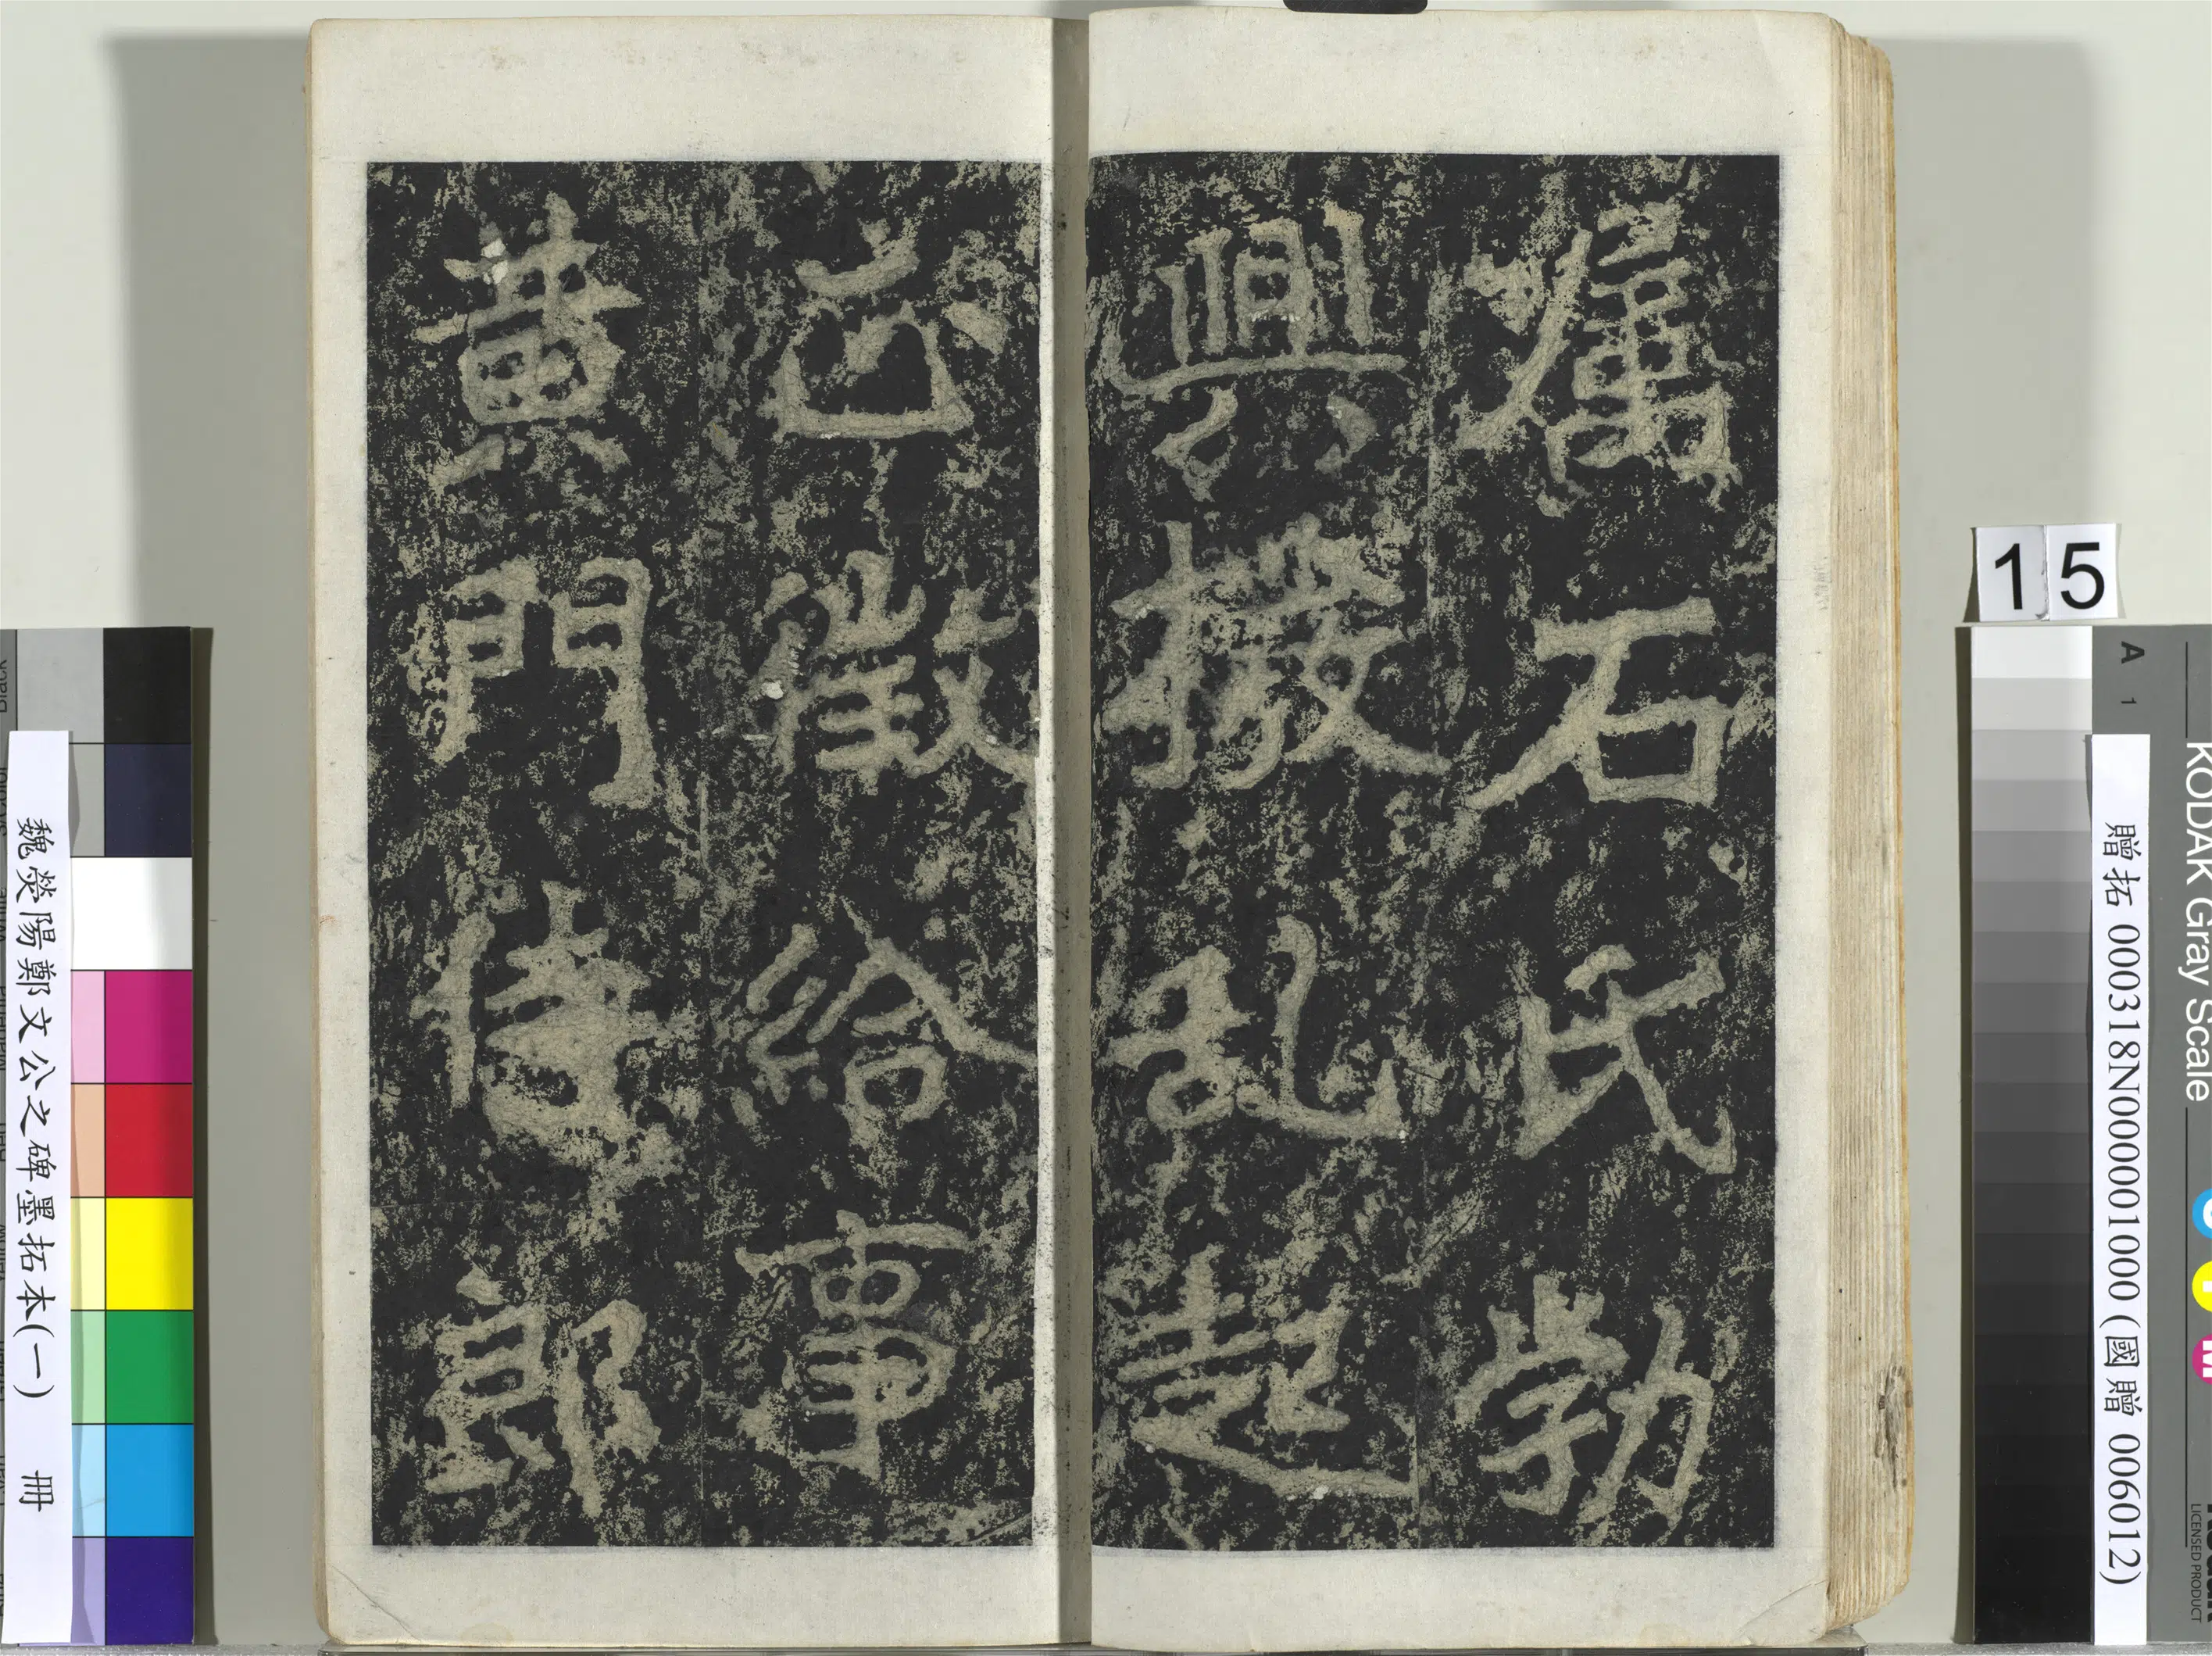 屬石氏勃
興撥乱起
正徵給事
黃門侍郎
魏滎陽鄭文公之碑墨拓本(一) 冊
15
贈拓 000318N000001000 (國贈 006012)
A 1
KODAK Gray Scale
LICENSED PRODUCT